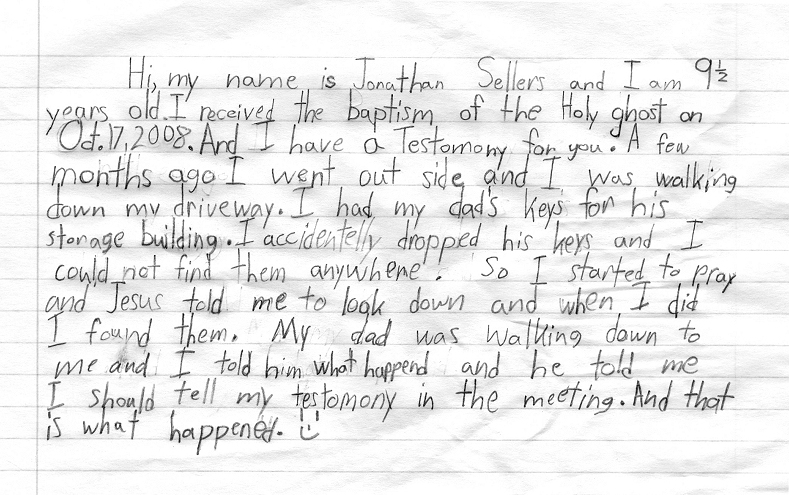 Hi, my name is Jonathan Sellers and I am 9½
years old. I received the baptism of the Holy ghost on
Oct. 17, 2008. And I have a Testomony for you. A few
months ago I went out side and I was walking
down my driveway. I had my dad's keys for his
storage building. I accidentelly dropped his keys and I
could not find them anywhere. So I started to pray
and Jesus told me to look down and when I did
I found them. My dad was walking down to
me and I told him what happend and he told me
I should tell my testomony in the meeting. And that
is what happened.